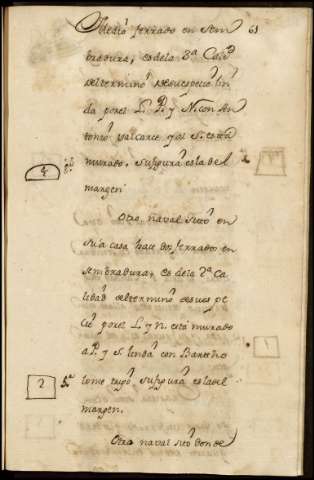 61
Medio ferrado en sem
bradura, es dela 3ª Calid
del termino desu especie lin
da por el L. P. y N. con An
tonio valcarce y al S. esta
murado, Su figura es la del
4
margen
Otro, naval sitto en
su casa hace dos ferrados en
sembradura, es dela 2ª Ca
lidad del termino desu es pe
cie por el L. y N. esta murado
a P. y S. linda con Bartho
2 5ª lome trigo, Su figura es la del
margen.
Otro naval sitto donde